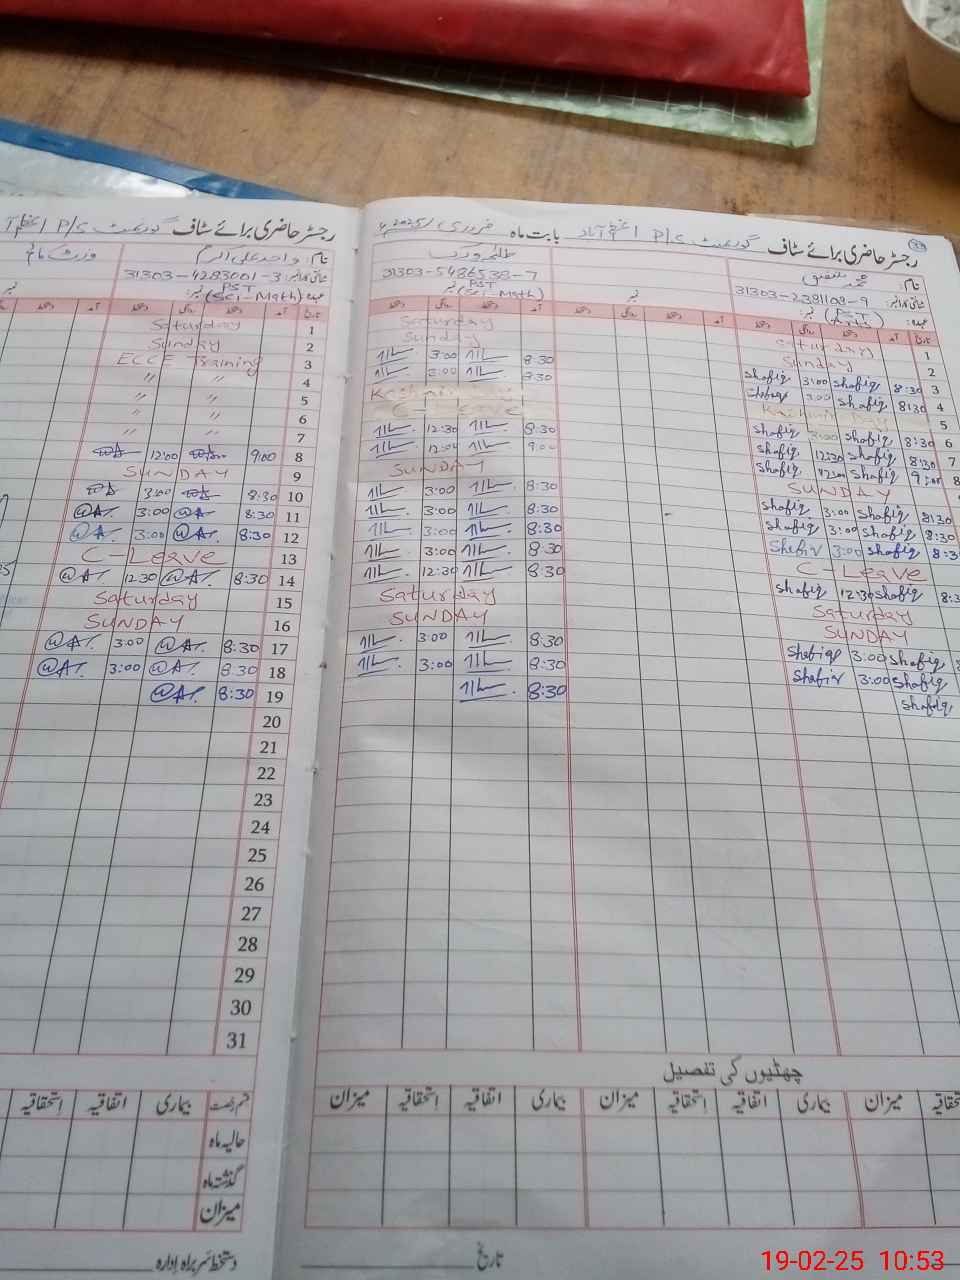 رجسٹر حاضری برائے سٹاف گورنمنٹ P/S اعظم آباد بابت ماہ فروری 2025ء
نام: محمد شفیق
شناختی کارڈ نمبر: 31303-2381108-9
عہدہ: PST
تاریخ آمد دستخط روانگی دستخط
1 Saturday
2 Sunday
3 8:30 Shafiq 3:00 Shafiq
4 8:30 Shafiq 3:00 Shafiq
5 Kashmir Day
6 8:30 Shafiq 3:00 Shafiq
7 8:30 Shafiq 12:30 Shafiq
8 9:00 Shafiq 12:00 Shafiq
SUNDAY
8:30 Shafiq 3:00 Shafiq
8:30 Shafiq 3:00 Shafiq
8:3 Shafiq 3:00 Shafiq
C-Leave
8:3 Shafiq 12:30 Shafiq
Saturday
SUNDAY
Shafiq 3:00 Shafiq
Shafiq 3:00 Shafiq
Shafiq
31303-5486538-7
PST
(Sci-Math)
Saturday
Sunday
8:30 3:00
8:30 3:00
Kashmir Day
C-Leave
8:30 12:30
9:00 12:00
SUNDAY
8:30 3:00
8:30 3:00
8:30 3:00
8:30 3:00
8:30 12:30
Saturday
SUNDAY
8:30 3:00
8:30 3:00
8:30
چھٹیوں کی تفصیل
بیماری اتفاقیہ استحقاقیہ میزان
تاریخ
رجسٹر حاضری برائے سٹاف گورنمنٹ P/S اعظم
نام: واجد علی اکرم
شناختی کارڈ نمبر: 31303-4283001-3
عہدہ: PST (Sci-Math)
تاریخ آمد دستخط روانگی دستخط
1 Saturday
2 Sunday
3 ECCE Training
4 〃 〃
5 〃 〃
6 〃 〃
7 〃 〃
8 9:00 12:00
9 SUNDAY
10 8:30 3:00
11 8:30 3:00
12 8:30 3:00
13 C-Leave
14 8:30 12:30
15 Saturday
16 SUNDAY
17 8:30 3:00
18 8:30 3:00
19 8:30
20
21
22
23
24
25
26
27
28
29
30
31
قسم رخصت بیماری اتفاقیہ استحقاقیہ
حالیہ ماہ
گذشتہ ماہ
میزان
دستخط سربراہ ادارہ
19-02-25 10:53